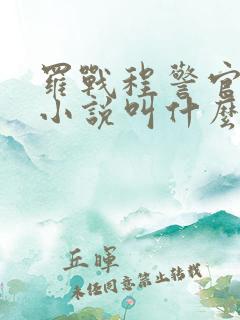 羅戰程警官
小說叫什麼
丘暉
未经同意禁止转载